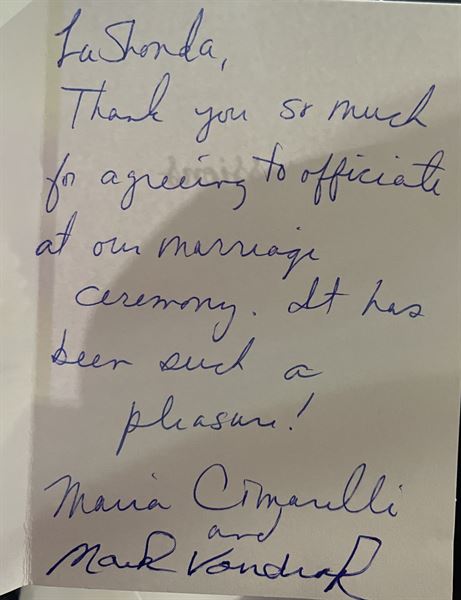 LaShonda,
Thank you so much
for agreeing to officiate
at our marriage
ceremony. It has
been such a
pleasure!
Maria Cimarelli
and
Mark Vondrak